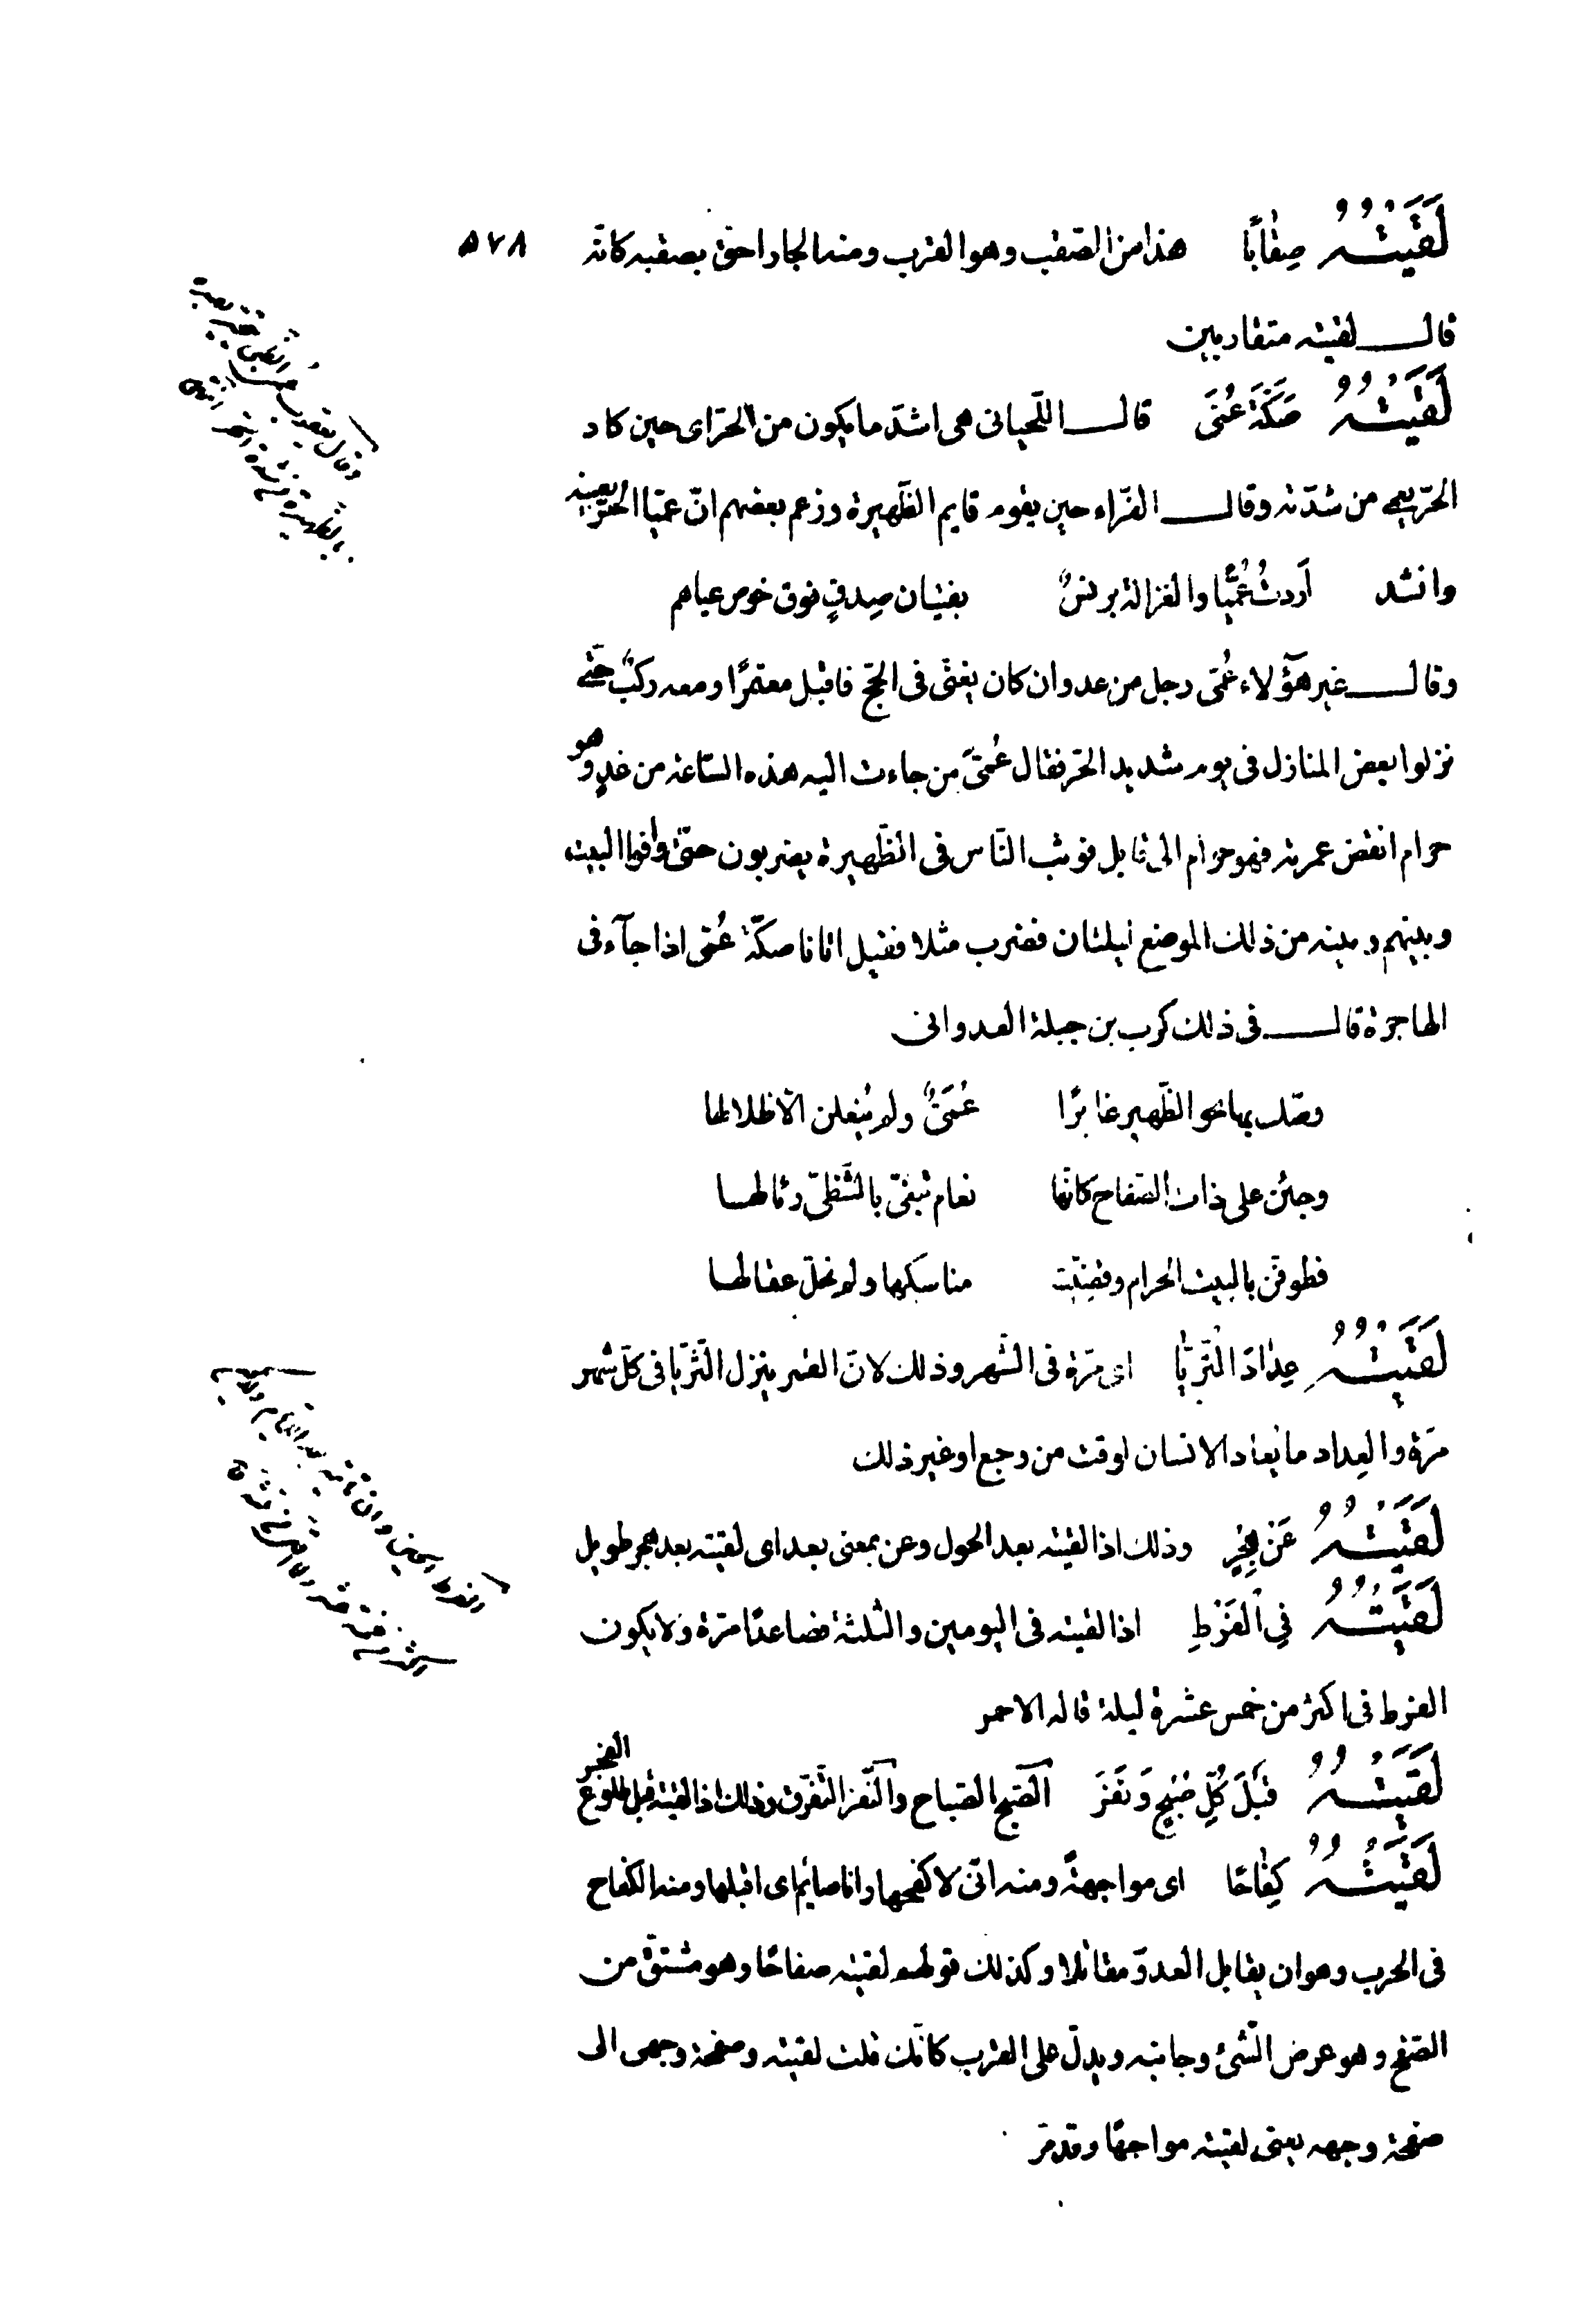 لَقِيتُهُ صِقَابًا هذا من الصّقب وهو القرب ومنه الجار احقّ بصقبه كانّه ٥٧٨
قال لقيته متقاربين
لَقِيتُهُ صَكَّةَ عُمَىَّ قال اللّحيانى هى اشدّ ما يكون من الحرّ اى حين كاد
الحرّ يعمى من شدّته وقال الفرّاء حين يقوم قايم الظّهيرة وزعم بعضهم انّ عميّا الحرّ بعينه
وانشد اَردتُ عُمَيًّا والغزالة برنسٌ بفتيان صِدقٍ فوق خوص عياهم
وقال غير هؤلاء عُمىّ رجل من عدوان كان يفتى فى الحجّ فاقبل معتمرًا ومعه ركبٌ حتى
نزلوا بعض المنازل فى يوم شديد الحرّ فقال عُمىّ من جاءت اليه هذه السّاعة من غدٍ وهو
حرام لم يقض عمرته فهو حرام الى قابل فوثب النّاس فى الظّهيرة يضربون حتىّ وافوا البيت
وبينهم وبينه من ذلك الموضع ليلتان فضرب مثلا فقيل اتانا صكّة عُمىّ اذا جآء فى
الهاجرة قال فى ذلك كرب بن جبلة العدوانى
وصكّ بها نحو الظّهير غايرًا عُمَىٌّ ولم ينعلن الاّ ظلالها
وجئن على ذات الصّفاح كانّها نعام تبغّى بالشّظىّ رئالها
فطوّفن بالبيت الحرام وقضّيت مناسكها ولم تحلّ عقالها
لَقِيتُهُ عِدَادَ الثُّرَيَّا اى مرّة فى الشّهر وذلك لانّ القمر ينزل الثّريّا فى كلّ شهر
مرّة والعِداد ما يعتاد الانسان لوقت من وجع او غير ذلك
لَقِيتُهُ عَنْ هَجْرٍ وذلك اذا لقيته بعد الحول وعن بمعنى بعد اى لقيته بعد هجر طويل
لَقِيتُهُ فِى الْفَرْطِ اذا لقيته فى اليومين والثّلثة فصاعدًا مرّة ولا يكون
الفرط فى اكثر من خمس عشرة ليلة قاله الاحمر
لَقِيتُهُ قَبْلَ كُلِّ صَيْحٍ وَنَفْرٍ الصّيح الصّياح والنّفر التّفرّق وذلك اذا لقيته قبل طلوع الفجر
لَقِيتُهُ كِفَاحًا اى مواجهةً ومنه انّى لاكفحها وانا صايم اى اقبلها ومنه الكفاح
فى الحرب وهو ان يقابل العدوّ مقاتلا وكذلك قولهم لقيته صفاحًا وهو مشتقّ من
الصّفح وهو عرض الشّئ وجانبه ويدلّ على القرب كانّك قلت لقيته وصفحة وجهى الى
صفحة وجهه يعنى لقيته مواجهًا وقد مرّ